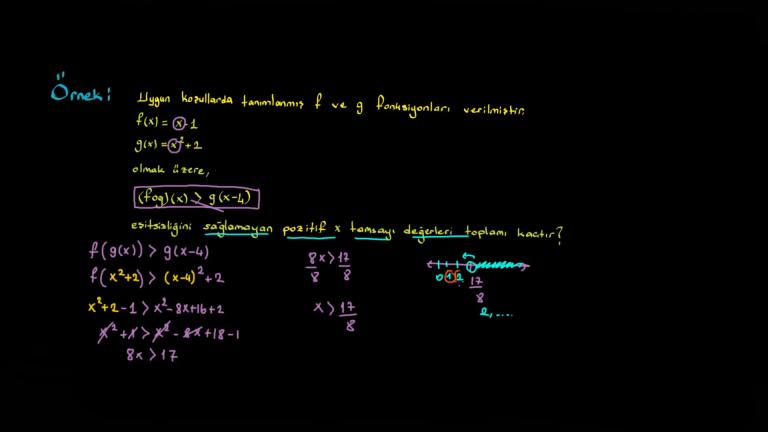 Örnek:
Uygun koşullarda tanımlanmış f ve g fonksiyonları verilmiştir.
f(x) = x-1
g(x) = x²+2
olmak üzere,
(fog)(x) > g(x-4)
eşitsizliğini sağlamayan pozitif x tamsayı değerleri toplamı kaçtır?
f(g(x)) > g(x-4)
f(x²+2) > (x-4)²+2
x²+2-1 > x²-8x+16+2
x²+1 > x²-8x+18-1
8x > 17
8x/8 > 17/8
x > 17/8
0 1 2
17/8
2,....